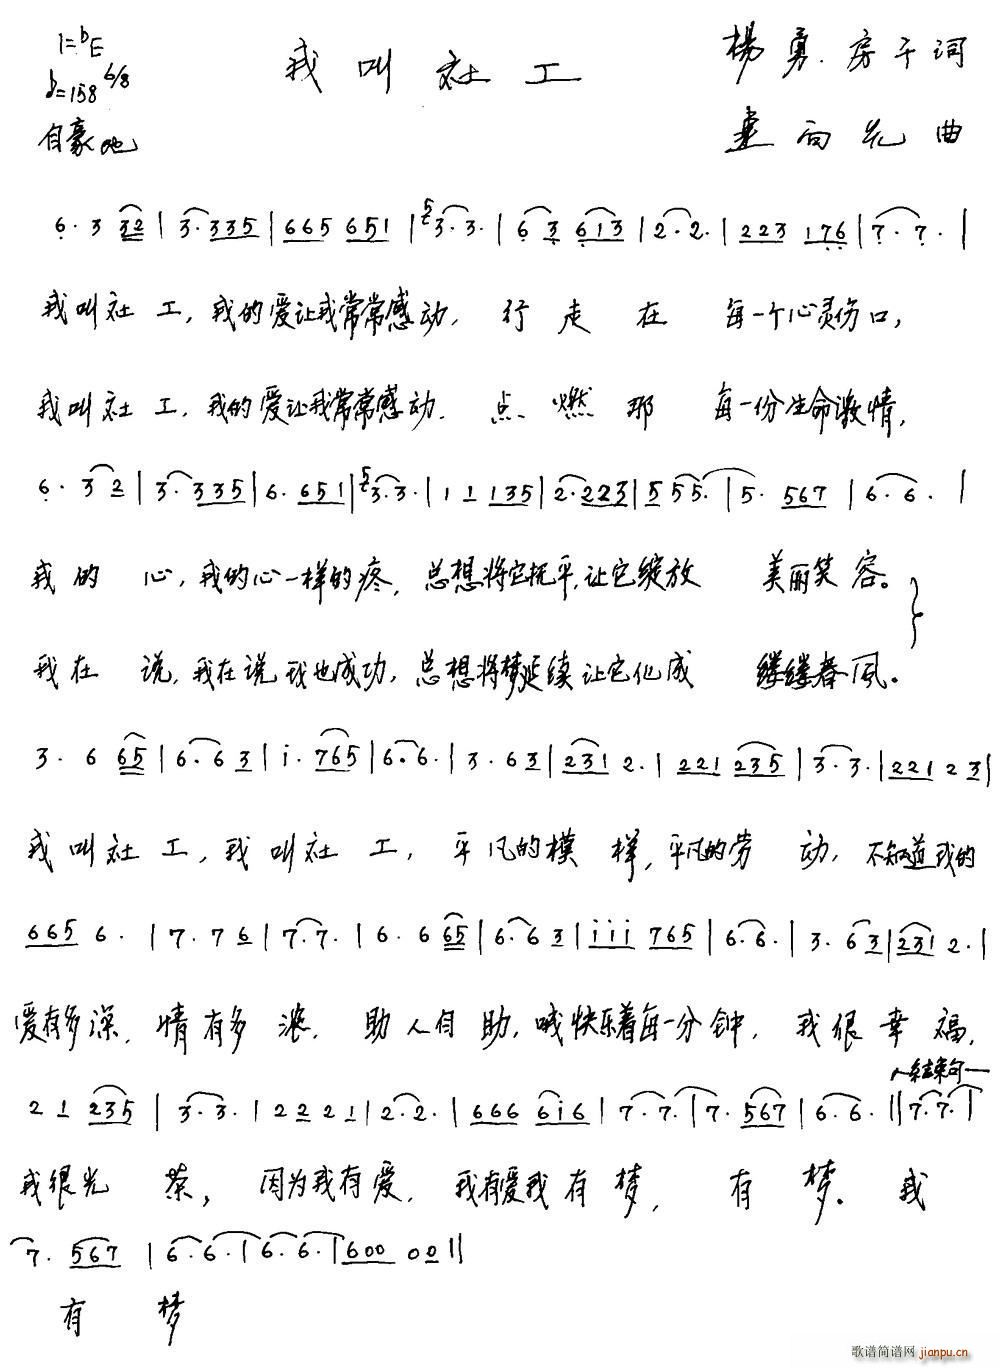 1=bE
=158 6/8
自豪地
我叫社工
楊勇.房千词
曲
6.3 32 | 3.335 | 665 651 | 5 3.3. | 6 3 613 | 2.2. | 223 176 | 7.7. |
我叫社工,我的爱让我常常感动,行走在每一个心灵伤口,
我叫社工,我的爱让我常常感动.点燃那每一份生命激情,
6.32 | 3.335 | 6.651 | 5 3.3. | 1 1 135 | 2.223 | 5 55. | 5.567 | 6.6. |
我的心,我的心一样的疼,总想将它抚平,让它绽放美丽笑容。
我在说,我在说我也成功,总想将梦延续让它化成缕缕春風。
3.6 65 | 6.63 | i.765 | 6.6. | 3.63 | 231 2. | 221 235 | 3.3. | 221 23 |
我叫社工,我叫社工,平凡的模样,平凡的劳动,不知道我的
665 6. | 7.76 | 7.7. | 6.6 65 | 6.63 | iii 765 | 6.6. | 3.63 | 231 2. |
爱有多深,情有多浓.助人自助,喊快乐着每一分钟,我很幸福,
结束句
2 1 235 | 3.3. | 2221 | 2.2. | 666 6i6 | 7.7. | 7.567 | 6.6. || 7.7. |
我很光荣,因为我有爱.我有爱我有梦,有梦。我
7.567 | 6.6. | 6.6. | 600 00 ||
有梦
歌谱简谱网 jianpu.cn